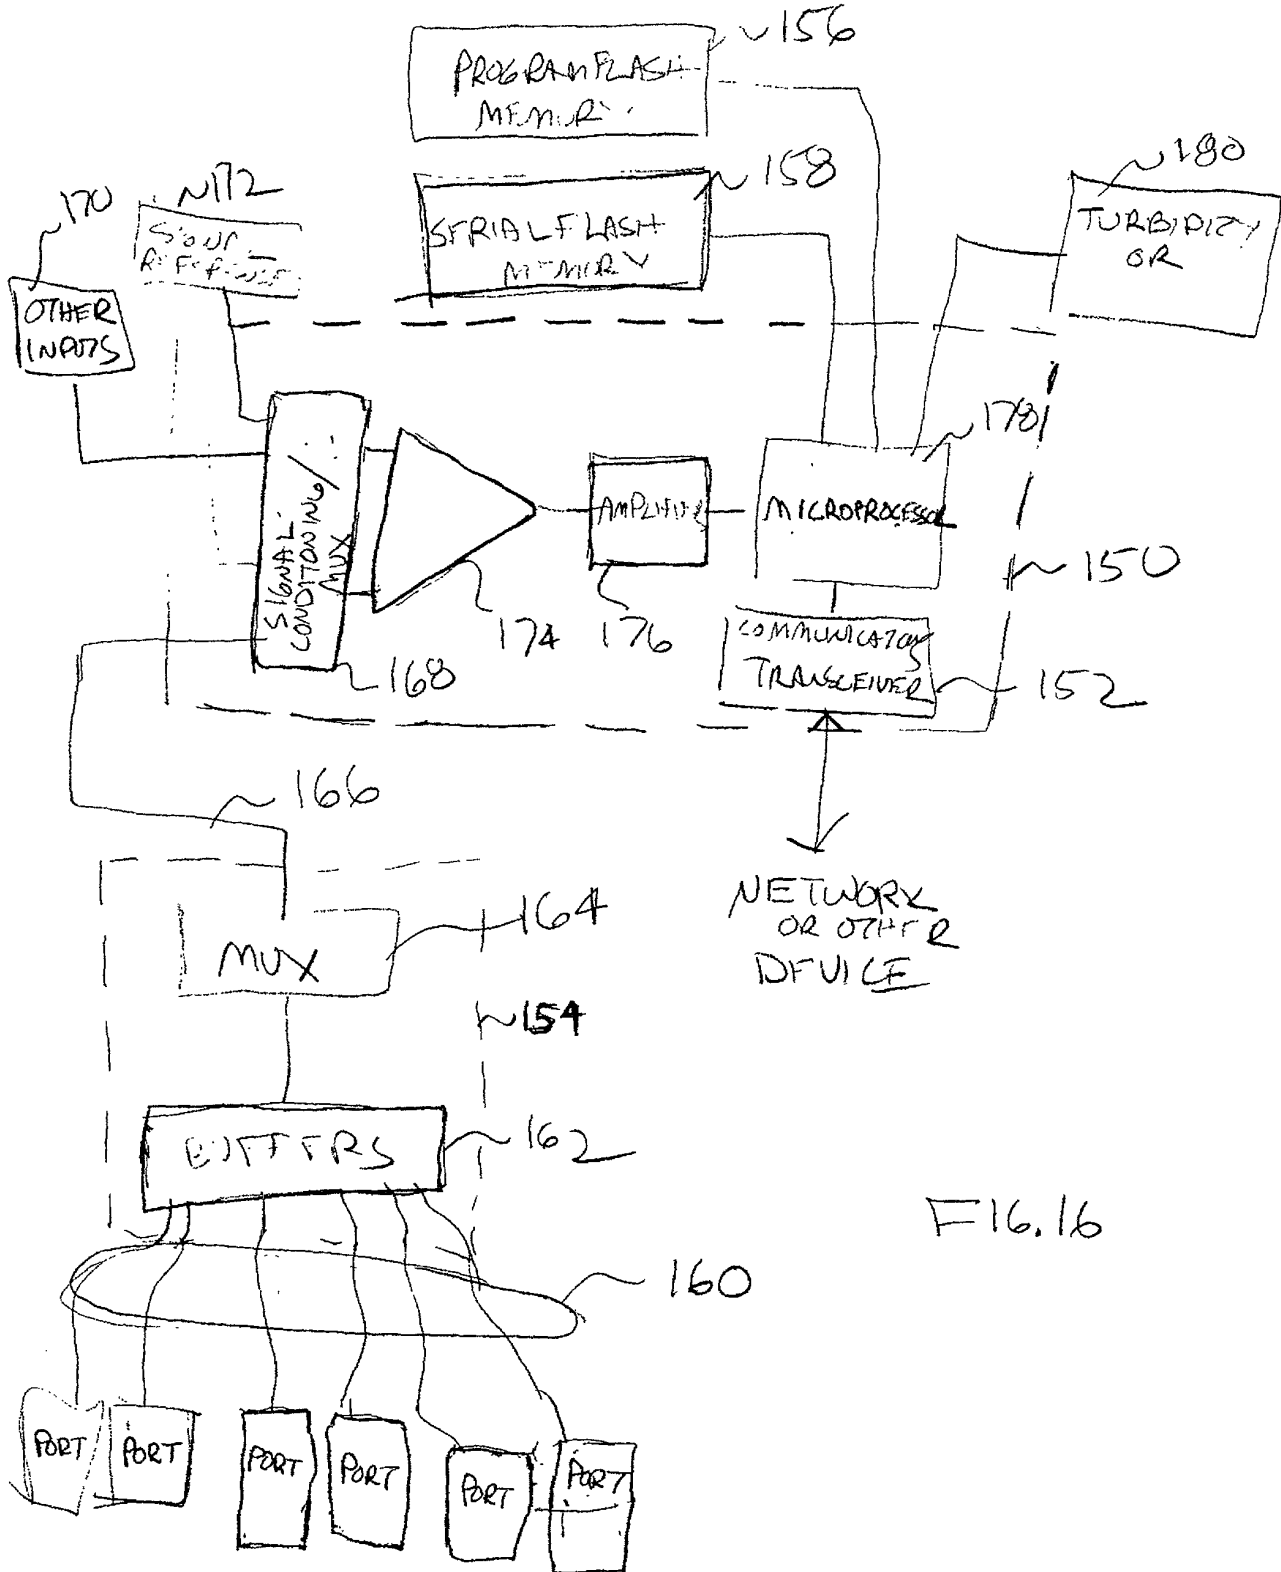 156
PROGRAM FLASH
MEMORY
158
SERIAL FLASH
MEMORY
180
TURBIDITY
OR
170
172
SIGNAL
REFERENCE
OTHER
INPUTS
178
SIGNAL
CONDITONING/
MUX
AMPLIFIER
MICROPROCESSOR
150
174
176
168
COMMUNICATIONS
TRANSCEIVER
152
166
NETWORK
OR OTHER
DEVICE
164
MUX
154
BUFFERS
162
FIG.16
160
PORT
PORT
PORT
PORT
PORT
PORT